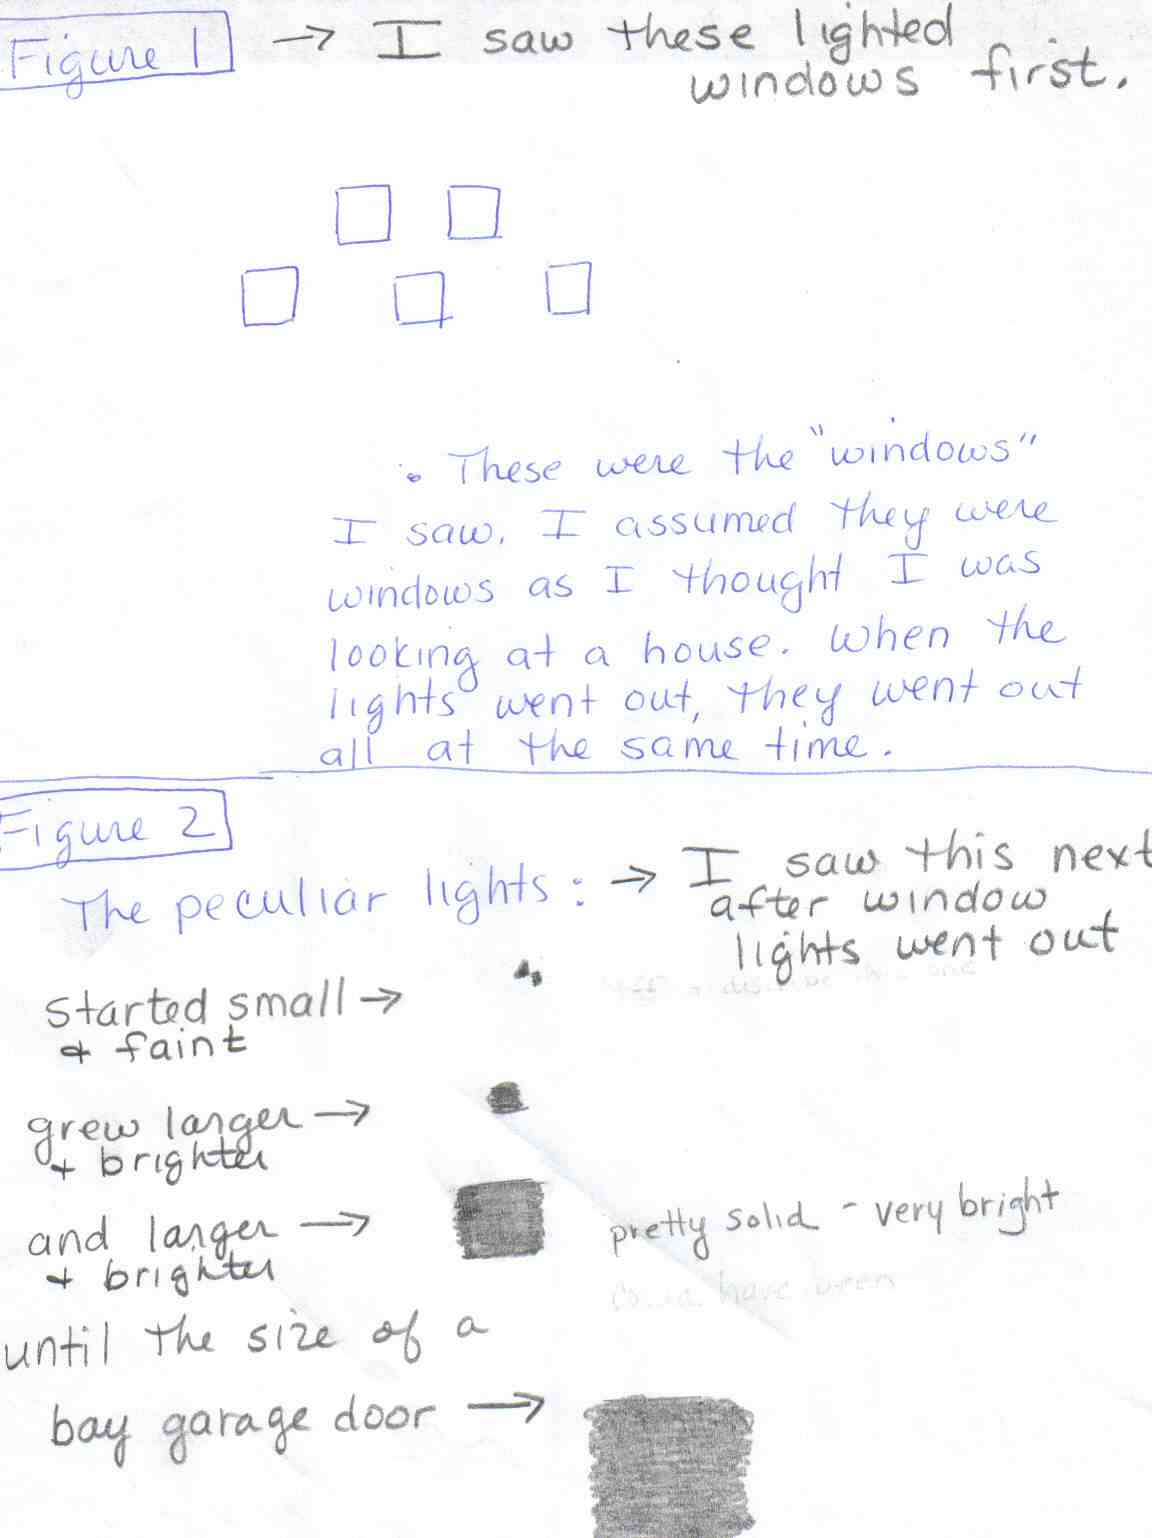 Figure 1 → I saw these lighted
windows first.
• These were the "windows"
I saw. I assumed they were
windows as I thought I was
looking at a house. When the
lights went out, they went out
all at the same time.
Figure 2
The peculiar lights: → I saw this next
after window
lights went out
started small →
& faint
grew larger →
+ brighter
and larger →
+ brighter
pretty solid - very bright
have been
until the size of a
bay garage door →